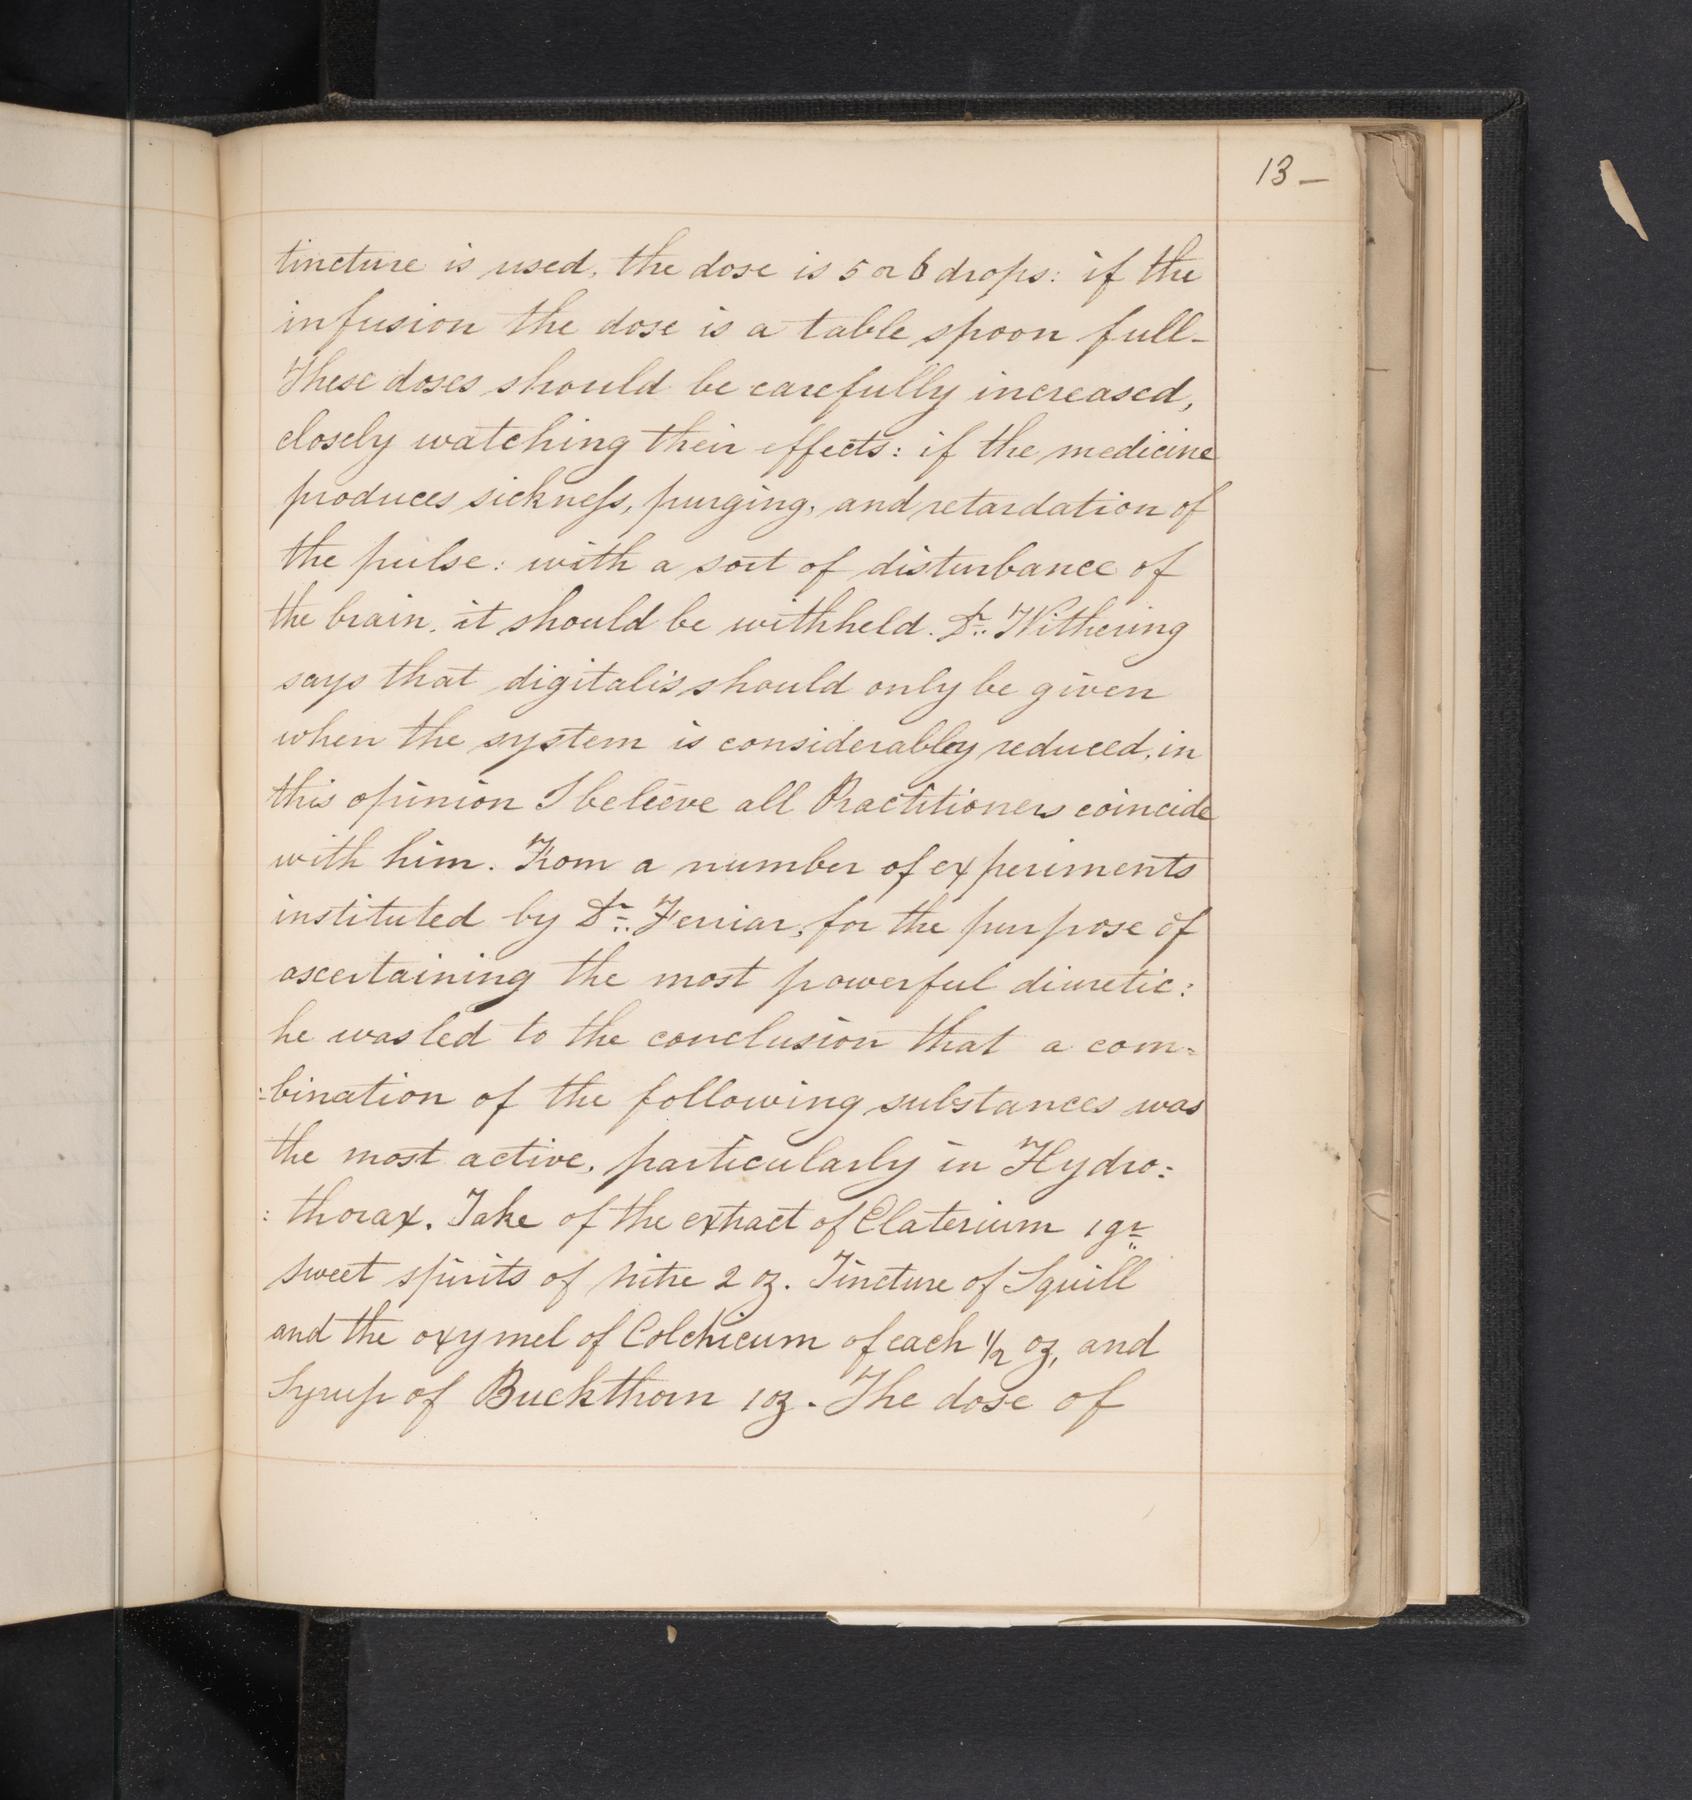 13 —
tincture is used, the dose is 5 or 6 drops: if the
infusion the dose is a table spoon full–
These doses should be carefully increased,
closely watching their effects: if the medicine
produces sickneſs, purging, and retardation of
the pulse: with a sort of disturbance of
the brain, it should be withheld. Dr. Withering
says that digitalis should only be given
when the system is considerabley reduced, in
this opinion I beleeve all Practitioners coincide
with him. From a number of experiments
instituted by Dr. Ferriar, for the purpose of
ascertaining the most powerful diuretic:
he was led to the conclusion that a com=
=bination of the following substances was
the most active, particularly in Hydro:
: thorax. Take of the extract of Elaterium 1 gr
sweet spirits of nitre 2 oz. Tincture of Squill
and the oxymel of Colchicum of each 1/2 oz, and
Syrup of Buckthorn 1 oz. The dose of